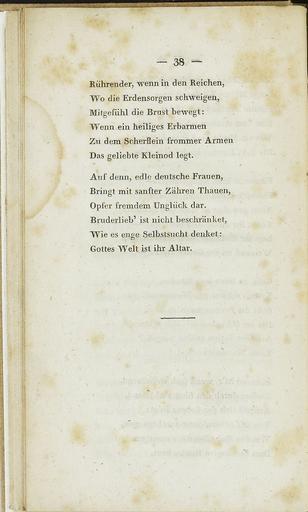 — 38 —
Rührender, wenn in den Reichen,
Wo die Erdensorgen schweigen,
Mitgefühl die Brust bewegt:
Wenn ein heiliges Erbarmen
Zu dem Scherflein frommer Armen
Das geliebte Kleinod legt.
Auf denn, edle deutsche Frauen,
Bringt mit sanfter Zähren Thauen,
Opfer fremdem Unglück dar.
Bruderlieb' ist nicht beschränket,
Wie es enge Selbstsucht denket:
Gottes Welt ist ihr Altar.